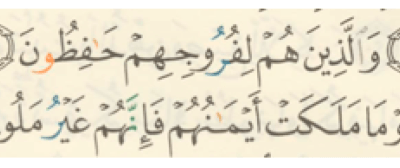 وَٱلَّذِينَ هُمْ لِفُرُوجِهِمْ حَـٰفِظُونَ
مَا مَلَكَتْ أَيْمَـٰنُهُمْ فَإِنَّهُمْ غَيْرُ